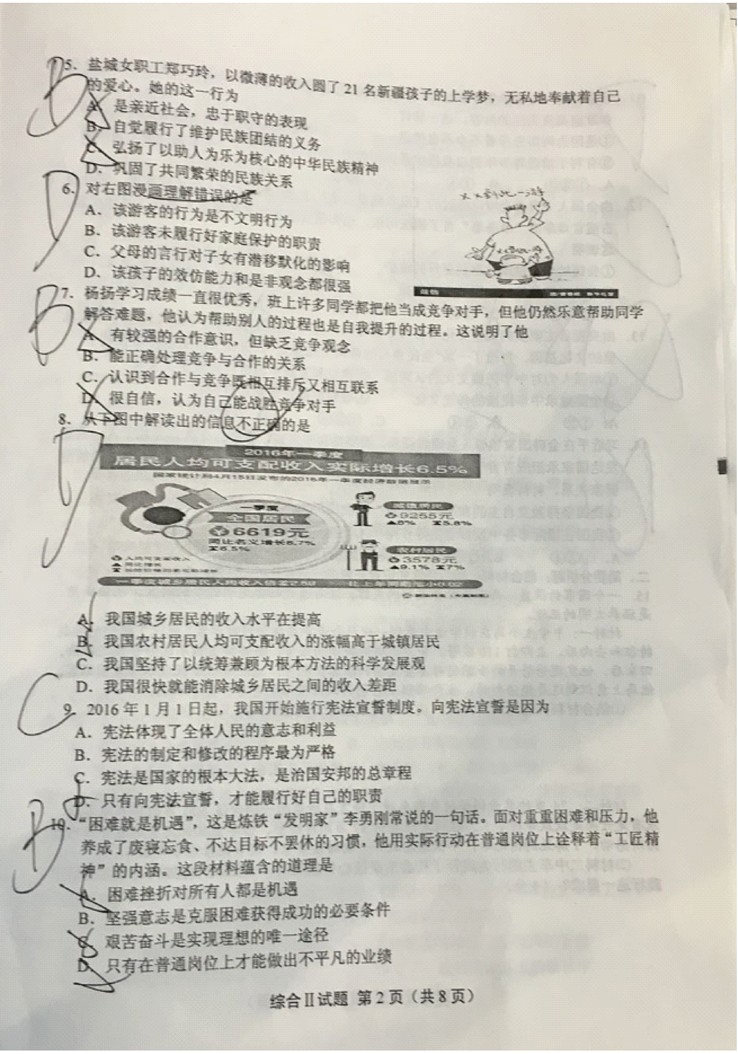 B
5. 盐城女职工郑巧玲，以微薄的收入圆了21名新疆孩子的上学梦，无私地奉献着自己
的爱心。她的这一行为
A. 是亲近社会，忠于职守的表现
B. 自觉履行了维护民族团结的义务
C. 弘扬了以助人为乐为核心的中华民族精神
D. 巩固了共同繁荣的民族关系
D
6. 对右图漫画理解错误的是
A. 该游客的行为是不文明行为
B. 该游客未履行好家庭保护的职责
C. 父母的言行对子女有潜移默化的影响
D. 该孩子的效仿能力和是非观念都很强
B
7. 杨扬学习成绩一直很优秀，班上许多同学都把他当成竞争对手，但他仍然乐意帮助同学
解答难题，他认为帮助别人的过程也是自我提升的过程。这说明了他
A. 有较强的合作意识，但缺乏竞争观念
B. 能正确处理竞争与合作的关系
C. 认识到合作与竞争既相互排斥又相互联系
D. 很自信，认为自己能战胜竞争对手
D
8. 从下图中解读出的信息不正确的是
2016年一季度
居民人均可支配收入实际增长6.5%
国家统计局4月15日发布的2016年一季度经济数据显示
一季度
全国居民
6619元
同比名义增长8.7%
6.5%
城镇居民
9255元
8% 5.8%
农村居民
3578元
9.1% 7%
A. 我国城乡居民的收入水平在提高
B. 我国农村居民人均可支配收入的涨幅高于城镇居民
C. 我国坚持了以统筹兼顾为根本方法的科学发展观
D. 我国很快就能消除城乡居民之间的收入差距
C
9. 2016年1月1日起，我国开始施行宪法宣誓制度。向宪法宣誓是因为
A. 宪法体现了全体人民的意志和利益
B. 宪法的制定和修改的程序最为严格
C. 宪法是国家的根本大法，是治国安邦的总章程
D. 只有向宪法宣誓，才能履行好自己的职责
B
10. “困难就是机遇”，这是炼铁“发明家”李勇刚常说的一句话。面对重重困难和压力，他
养成了废寝忘食、不达目标不罢休的习惯，他用实际行动在普通岗位上诠释着“工匠精
神”的内涵。这段材料蕴含的道理是
A. 困难挫折对所有人都是机遇
B. 坚强意志是克服困难获得成功的必要条件
C. 艰苦奋斗是实现理想的唯一途径
D. 只有在普通岗位上才能做出不平凡的业绩
综合Ⅱ试题 第2页（共8页）